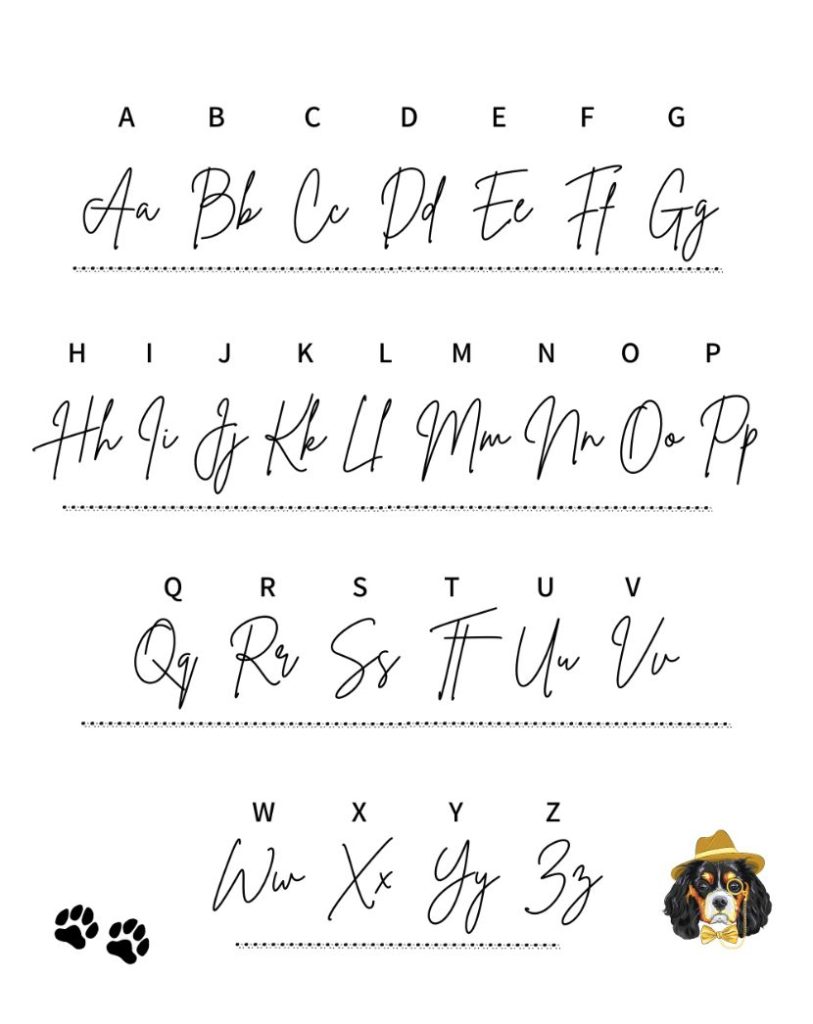 A B C D E F G
Aa Bb Cc Dd Ee Ff Gg
H I J K L M N O P
Hh Ii Jj Kk Ll Mm Nn Oo Pp
Q R S T U V
Qq Rr Ss Tt Uu Vv
W X Y Z
Ww Xx Yy Zz